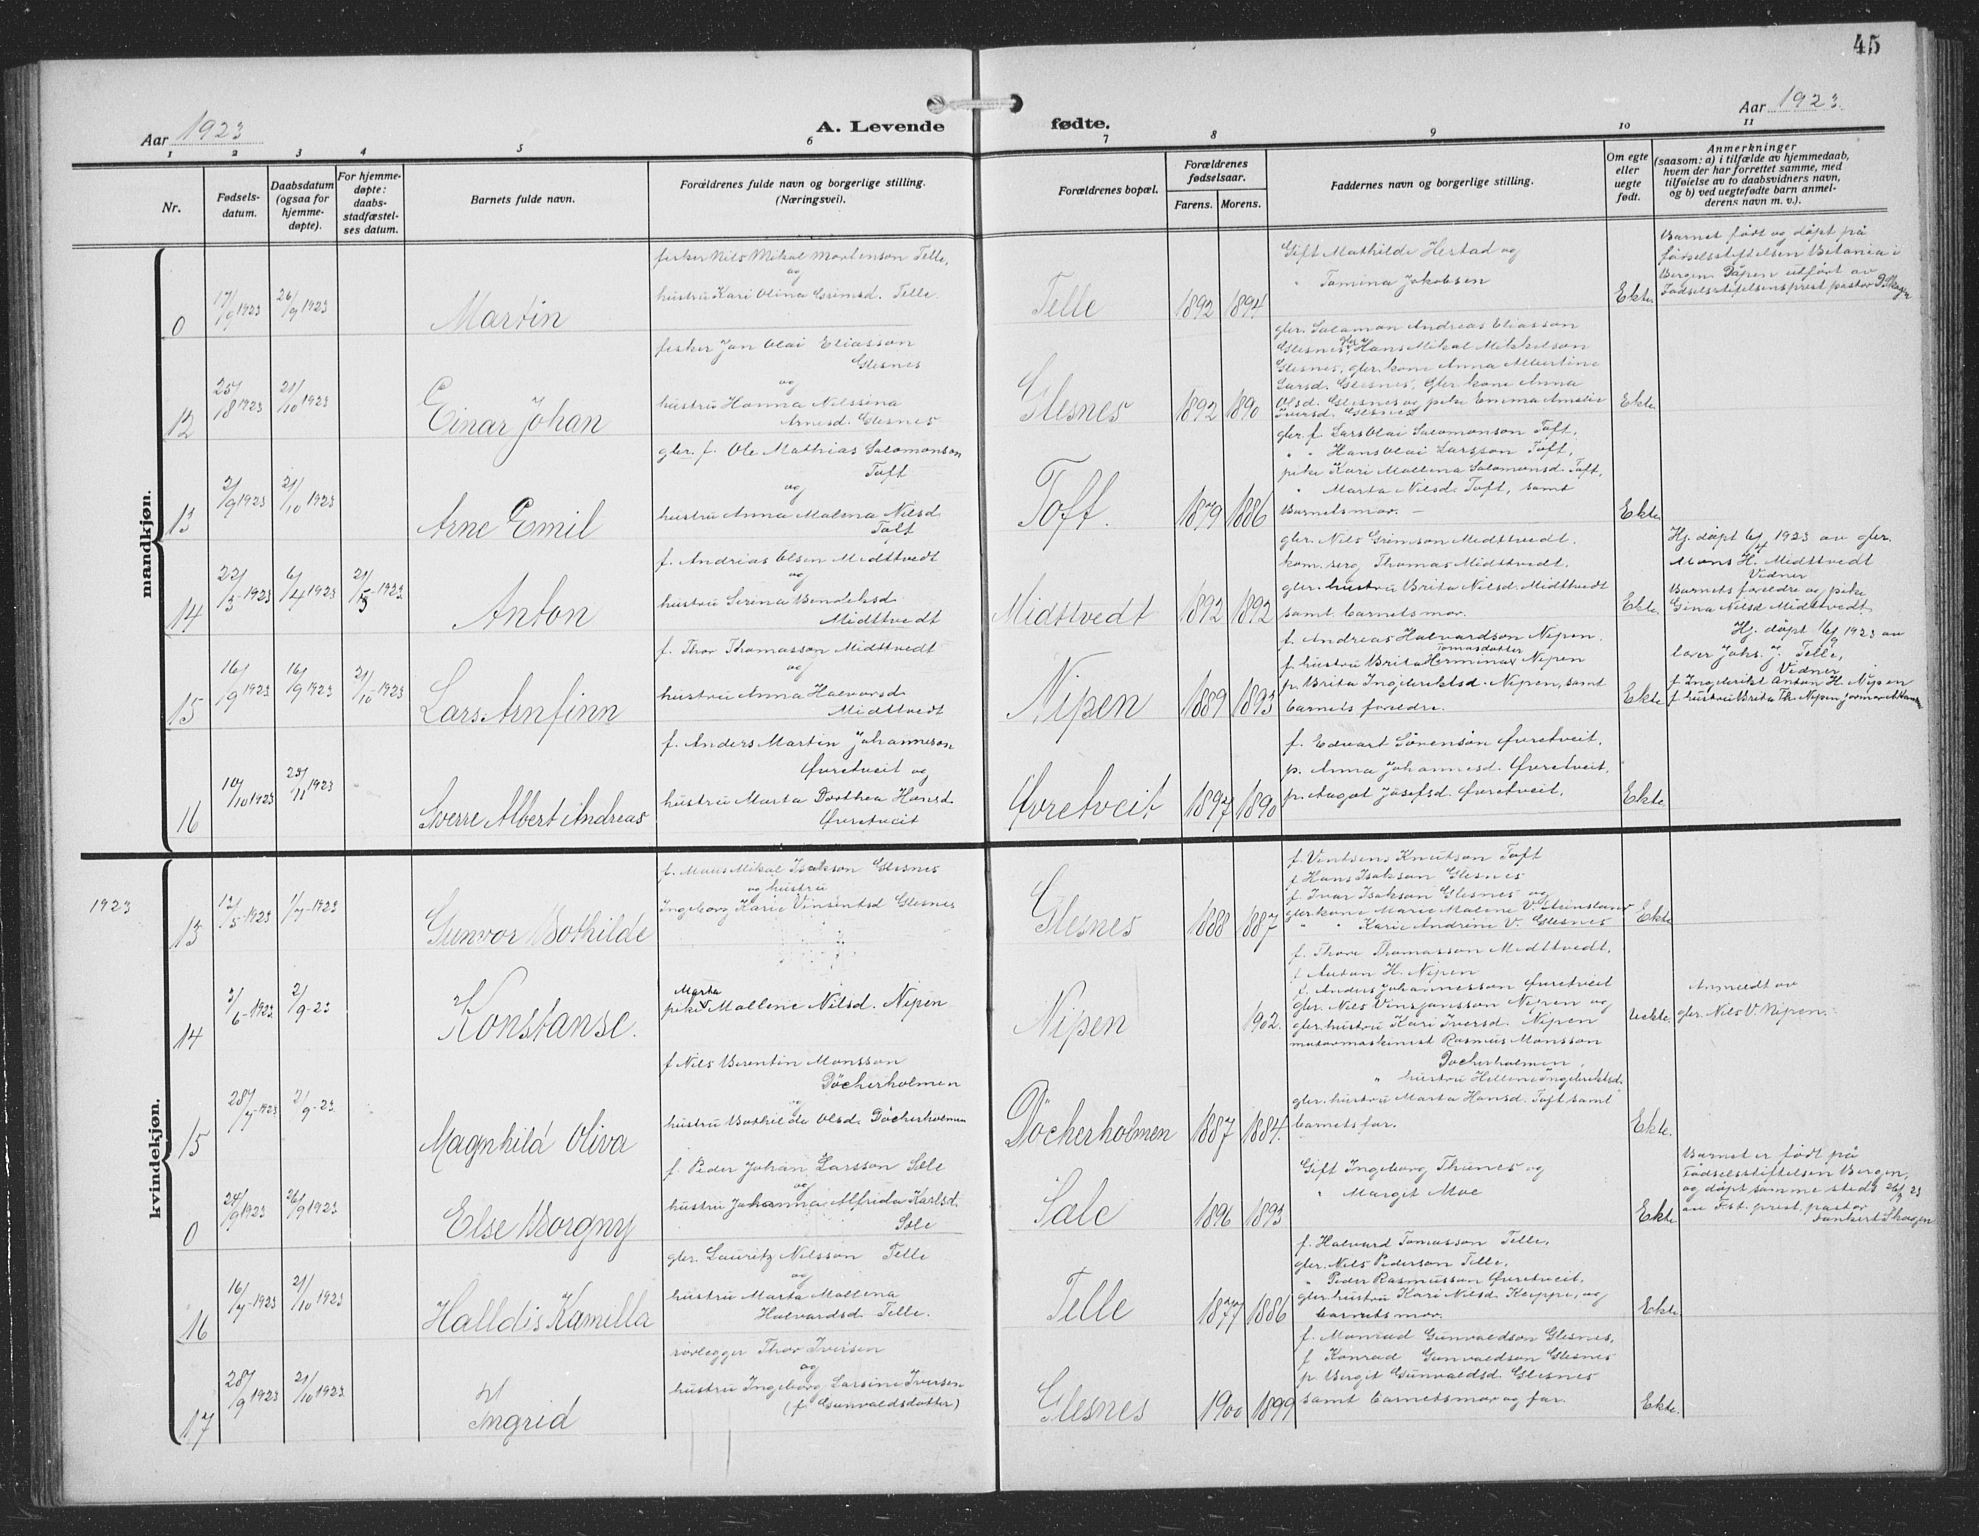 45
Aar 1923
A. Levende fødte.
Aar 1923.
1 2 3 4 5 6 7 8 9 10 11
Nr.
Fødsels-
datum.
Daabsdatum
(ogsaa for
hjemme-
døpte).
For hjemme-
døpte:
daabs-
stadfæstel-
ses datum.
Barnets fulde navn.
Forældrenes fulde navn og borgerlige stilling.
(Næringsvei).
Forældrenes bopæl.
Forældrenes
fødselsaar.
Farens. Morens.
Faddernes navn og borgerlige stilling.
Om egte
eller
uegte
født.
Anmerkninger
(saasom: a) i tilfælde av hjemmedaab,
hvem der har forrettet samme, med
tilføielse av to daabsvidners navn,
og b) ved uegtefødte barn anmel-
derens navn m. v.).
mandkjøn.
0 17/9 1923 26/9 1923 Martin
fisker Nils Mikal Mortenson Telle,
og
hustru Kari Olina Grimsd. Telle.
Telle 1892 1894
Gift Mathilde Hestad og
" Tomina Jakobsen
Ekte
Barnet født og døpt på
fødselsstiftelsen Betania i
Bergen. Dåpen utført av
Fødselsstiftelsens prest pastor
12 25/8 1923 21/10 1923 Einar Johan
fisker Jan Olai Eliasson
Glesnes
og
hustru Hanna Nilssina
Arnesd. Glesnes
Glesnes 1892 1890
gbr. Salamon Andreas Eliasson
Glesnes, gbr. Hans Mikal Mikkelson
Glesnes, gbr. kone Anna Albertine
Larsd. Glesnes, gbr. kone Anna
Olsd. Glesnes og pike Emma Amalie
Iversd. Glesnes
Ekte
13 2/9 1923 21/10 1923 Arne Emil
gbr. f. Ole Mathias Salomonson
Toft
og
hustru Anna Malena Nilsd.
Toft
Toft. 1879 1886
gbr. f. Lars Olai Salomonson Toft,
" " Hans Olai Larsson Toft,
pike Kari Mallena Salomonsd. Toft,
" Marta Nilsd. Toft, samt
Barnets mor. —
Ekte
14 22/3-1923 6/4 1923 21/5-1923 Anton
f. Andreas Olsen Midttvedt
og
hustru Serina Bendeksd.
Midttvedt
Midttvedt 1892 1892
gbr. Nils Grimson Midttvedt.
kom. serg. Thomas Midttvedt.
gbr. hustru Brita Nilsd. Midttvedt
samt barnets mor.
Ekte
Hj. døpt 6/4 1923 av gbr.
Mons H. Midttvedt
Vidner
Barnets foreldre og pike
Gina Nilsd Midttvedt
15 16/9 1923 16/9 1923 21/10-1923 Lars Arnfinn
f. Thor Thomasson Midttvedt
og
hustru Anna Halvorsd.
Midttvedt
Nipen 1889 1893
f. Andreas Halvardson Nipen.
f. hustru Brita Hermina Tomasdotter Nipen
p. Brita Ingebriktsd. Nipen, samt
barnets foredre.
Ekte
Hj. døpt 16/9 1923 av
lærer Johs. J. Telle,
Vidner
f. Ingebrikt Anton H. Nipen
f. hustru Brita Th. Nipen
16 10/10 1923 25/11 1923 Sverre Albert Andreas
f. Anders Martin Johanneson
Øvretveit og
hustru Marta Dorthea Hansd.
Øvretveit
Øvretveit 1897 1890
f. Edvart Sørensøn Øvretveit.
p. Anna Johannesd. Øvretveit,
p. Aagot Josefsd. Øvretveit,
Ekte
1923
kvindekjøn.
13 12/5-1923 1/7-1923 Gunvor Bothilde
f. Mons Mikal Isakson Glesnes
og hustru
Ingeborg Karie Vinsentsd Glesnes
Glesnes 1888 1887
f. Vintsens Knutson Toft
f. Hans Isakson Glesnes
f. Ivar Isakson Glesnes og
gbr. kone Marie Malene V. Steinsland
" " Karie Andrine V. Glesnes
Ekte
14 3/6-1923 2/9-23 Konstanse.
pike Marta Mallene Nilsd. Nipen
Nipen 1902.
f. Thore Thomasson Midttvedt,
f. Anton H. Nipen
f. Anders Johannesson Øvretveit
gbr. Nils Vinsjansson Nipen og
gbr. hustru Kari Iversd. Nipen
Uekte.
Anmeldt av
gbr. Nils V. Nipen.
15 28/7-1923 2/9-23 Magnhild Oliva
f Nils Berentin Monsson
Döcherholmen
og
hustru Bothilde Olsd. Döcherholmen
Döcherholmen 1887 1884.
motormaskinist Rasmus Monsson
Döcherholmen,
" hustru Hellene Ingebriktsd.
gbr. hustru Marta Hansd. Toft samt
barnets far.
Ekte.
0 24/9 1923 26/9 1923 Else Borgny
f. Peder Johan Larsson Sæle
og
hustru Johanna Alfrida Karlsd.
Sæle
Sæle 1896 1893
Gift Ingeborg Thunes og
" Margit Moe
Ekte
Barnet er født på
Fødselsstiftelsen Bergen,
og døpt samme steds 26/9 23
av Fst. prest, pastor
Dankert Skagen
16 16/7-1923 21/10 1923 Halldis Kamilla
gbr. Lauritz Nilsson Telle
og
hustru Marta Mallena
Halvardsd. Telle.
Telle 1877 1886
f. Halvard Tomasson Telle,
gbr. Nils Pederson Telle,
" Peder Rasmusson Øvretveit,
gbr. hustru Kari Nilsd. Kleppe, og
barnets mor.
Ekte.
17 28/9 1923 21/10 1923 Ingrid
rørlegger Thor Iversen
og
hustru Ingeborg Larsine Iversen
(f. Gunvaldsdotter)
Glesnes 1900 1899
f. Monrad Gunvaldson Glesnes,
f Konrad Gunvaldson Glesnes
p. Bergit Gunvaldsd. Glesnes
samt barnets mor og far.
Ekte.